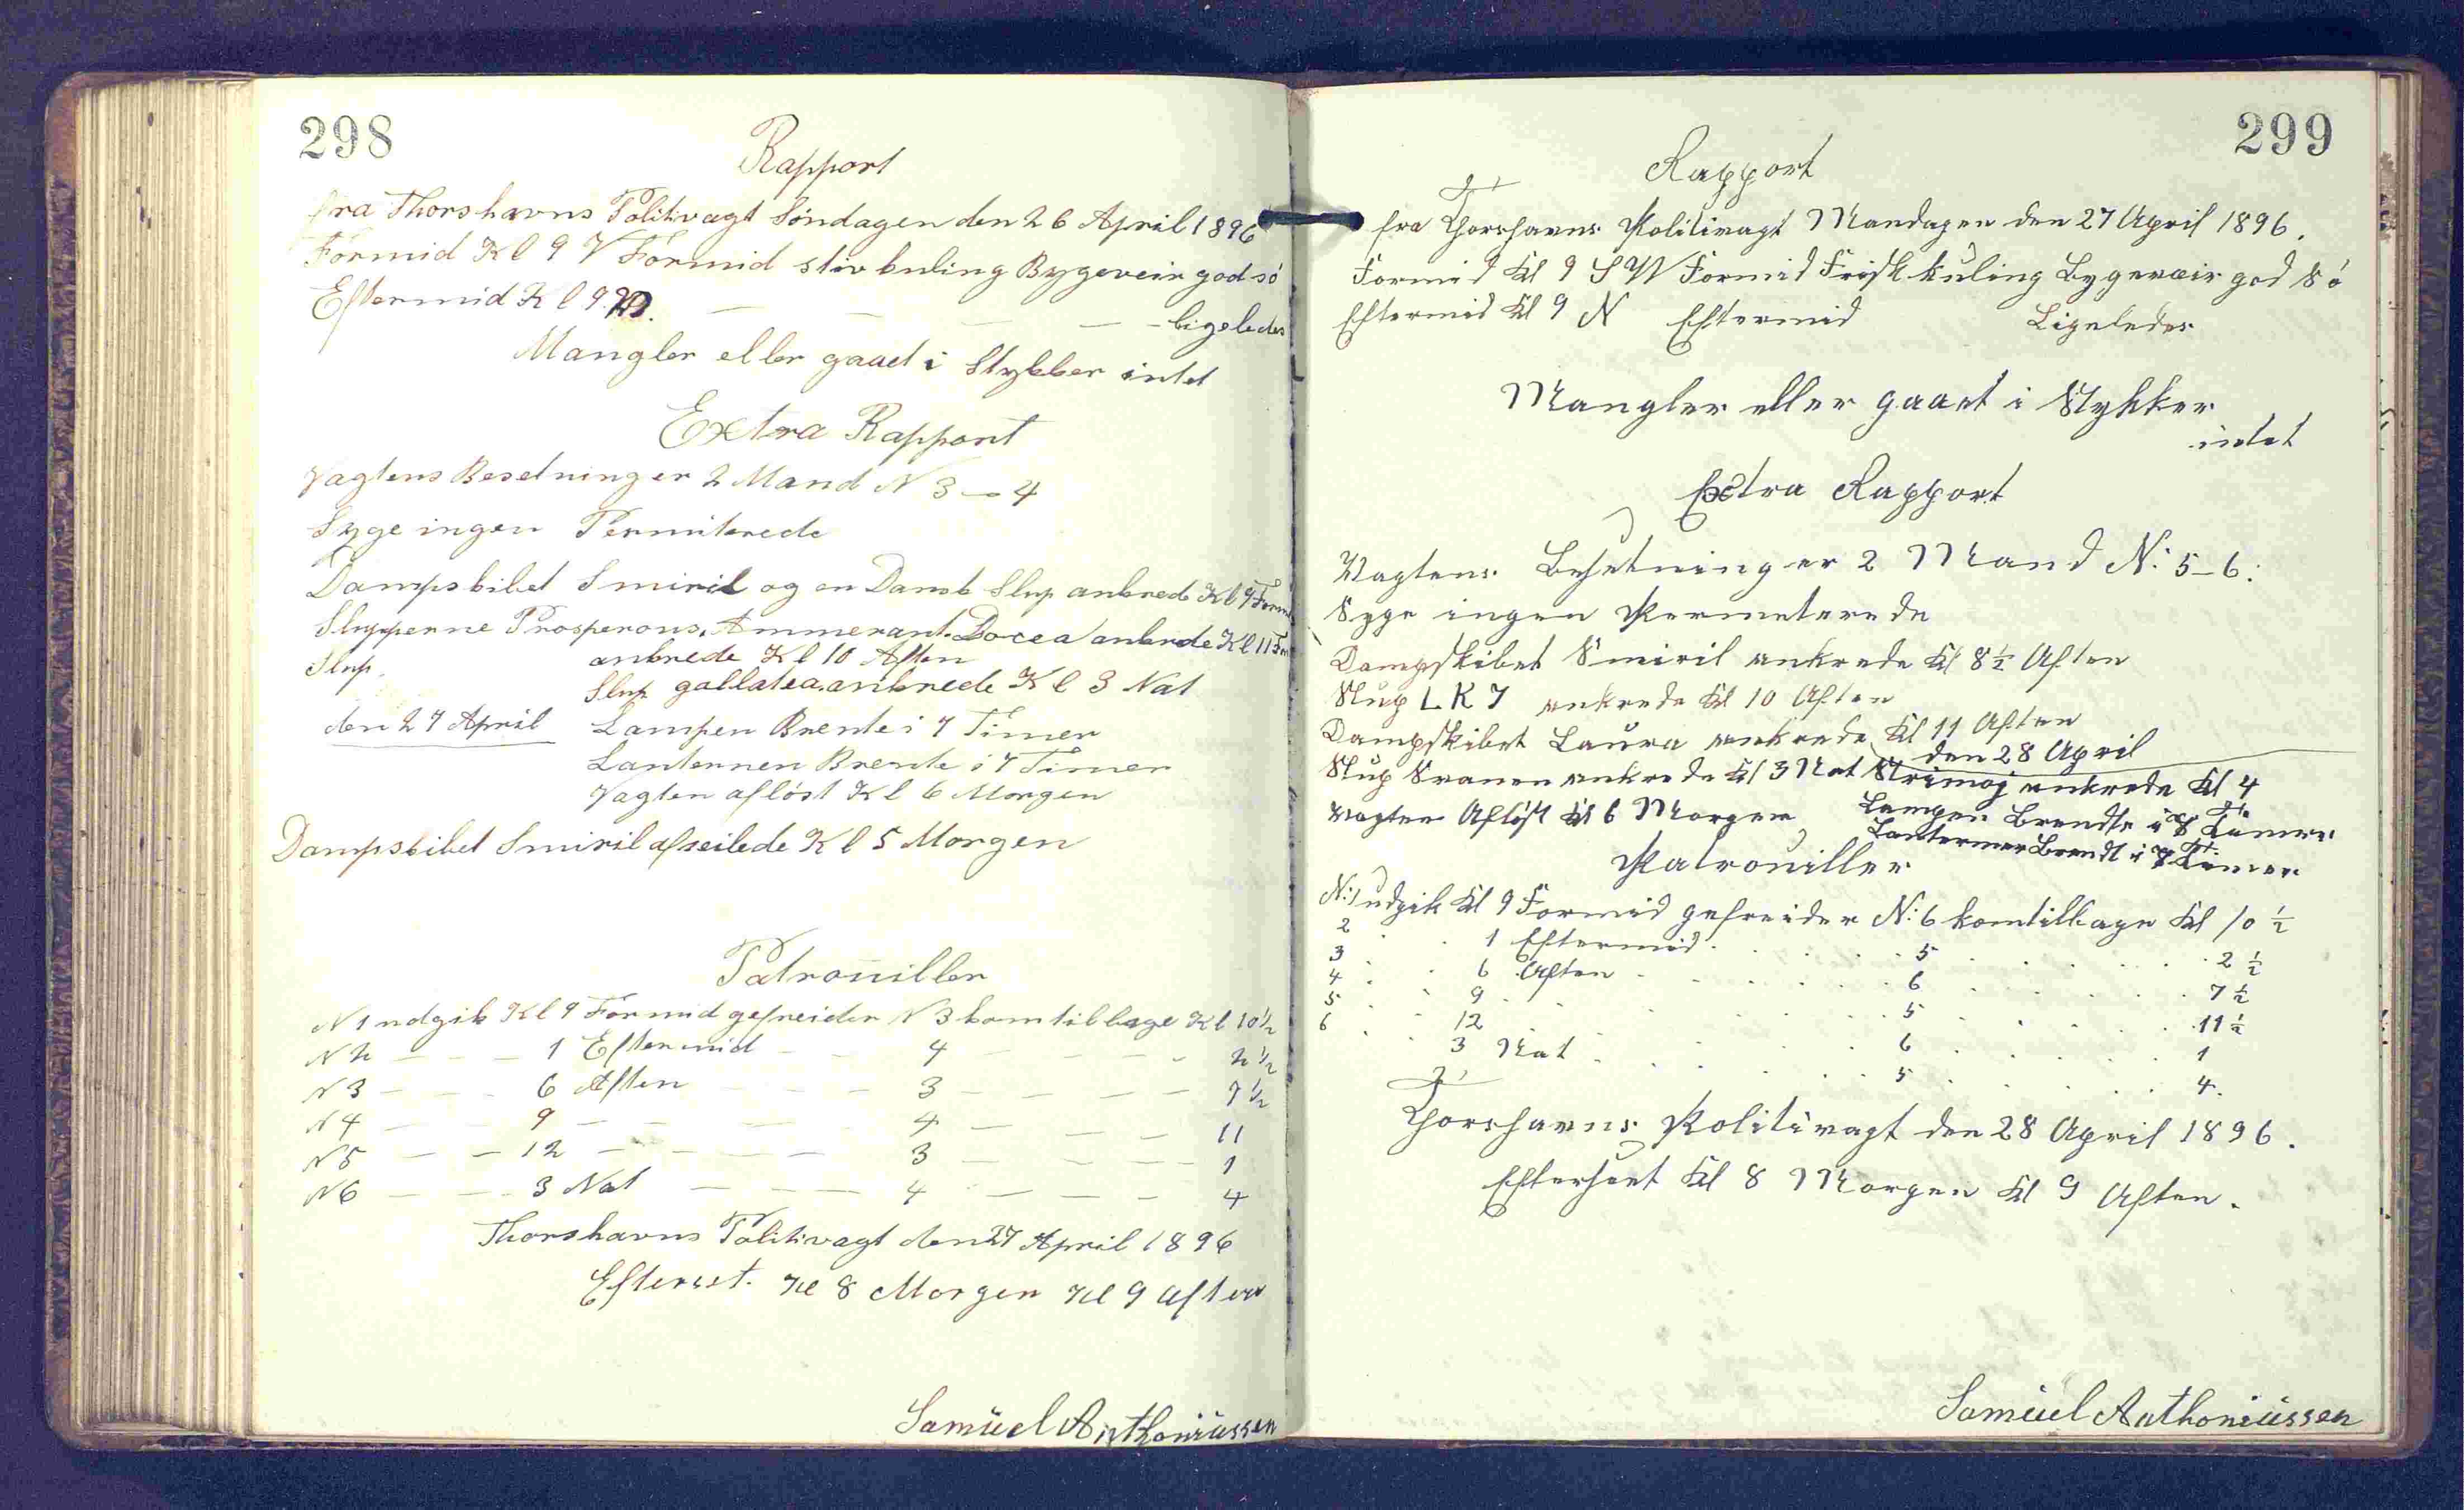 298
Rapport
fra Thorshavns Politivagt Søndagen den 26 April 1896
Formid Kl 9 V Formid stiv kuling Bygeveir god sö
Eftermid Kl 9 — — — — ligeledes
Mangler eller gaaet i Stykker intet
Extra Rapport
Vagtens Besetning er 2 Mand N 3 – 4
Syge ingen Permiterede
Dampskibet Smiril og en Dansk Slup ankrede Kl 9 Form
Slupperne Prosperous. Ammerant. Docea ankrede Kl 11 Fm
Slup. ankrede Kl 10 Aften
Slup gallatea ankrede Kl 3 Nat
den 27 April Lampen Brente i 7 Timer
Lanternen Brente i 7 Timer
Vagten afløst Kl 6 Morgen
Dampskibet Smiril afseilede Kl 5 Morgen
Patrouiller
N 1 udgik Kl 9 Formid gefreider N 3 kom tilbage Kl 10 1/2
N 2 — — — 1 Eftermid — — 4 — — — — 2 1/2
N 3 — — — 6 Aften — — 3 — — — — 7 1/2
N 4 — — 9 — — — — 4 — — — — 11
N 5 — — 12 — — — — 3 — — — — 1
N 6 — — — 3 Nat — — — 4 — — — — 4
Thorshavns Politivagt den 27 April 1896
Efterset. Kl 8 Morgen Kl 9 Aften
Samüel Anthoniüssen
299
Rapport
fra Thorshavns Politivagt Mandagen den 27 April 1896.
Formid Kl 9 SW Formid Frisk kuling Bygeveir god Sö
Eftermid Kl 9 N Eftermid Ligeledes
Mangler eller gaaet i Stykker
intet
Extra Rapport
Vagtens Besetning er 2 Mand N: 5–6:
Syge ingen Permeterede
Dampskibet Smiril ankrede Kl 8 1/2 Aften
Slup LK 7 ankrede Kl 10 Aften
Dampskibet Laura ankrede Kl 11 Aften
den 28 April
Slup Svanen ankrede Kl 3 Nat Strimoj ankrede Kl 4
Vagten Afløst Kl 6 Morgen Lampen Brendte i 7 Timer
Lanternen Brendt i 7 Timer
Patrouiller
N: 1 udgik Kl 9 Formid gefreider N: 6 kom tilbage Kl 10 1/2
2 . . 1 Eftermid . . 5 . . . . 2 1/2
3 . . 6 Aften . . . 6 . . . . 7 1/2
4 . . 9 . . . . 5 . . . . 11 1/2
5 . . 12 . . . . 6 . . . . 1
6 . . 3 Nat . . . 5 . . . . 4.
Thorshavns Politivagt den 28 April 1896.
Efterseet Kl 8 Morgen Kl 9 Aften.
Samüel Anthoniüssen